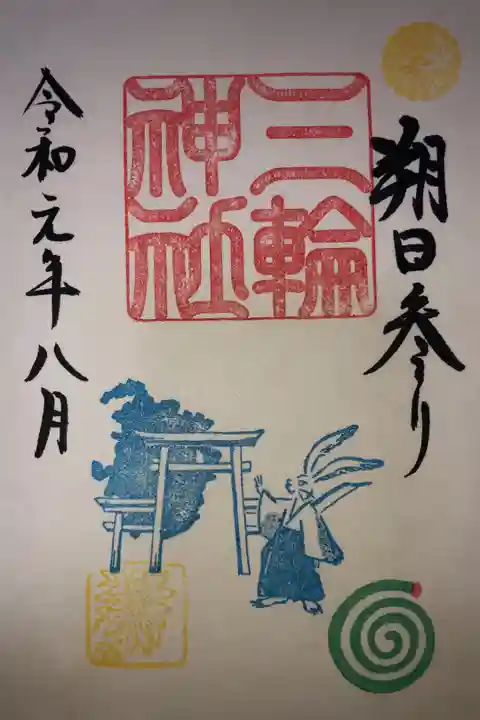 朔日参り
三輪神社
令和元年八月